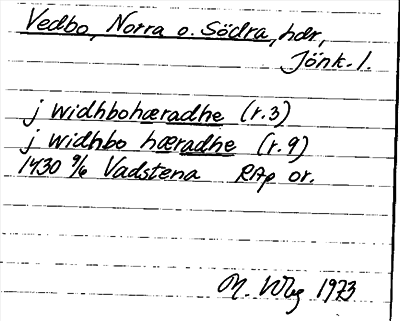 Vedbo, Norra o. Södra, hdr,
Jönk. l.
j widhbohæradhe (r. 3)
j widhbo hæradhe (r. 9)
1430 9/6 Vadstena RAp or.
M. 1973